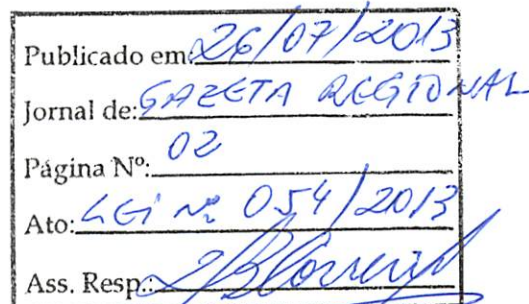 Publicado em: 26/07/2013
Jornal de: GAZETA REGIONAL
Página Nº: 02
Ato: LEI Nº 054/2013
Ass. Resp.: